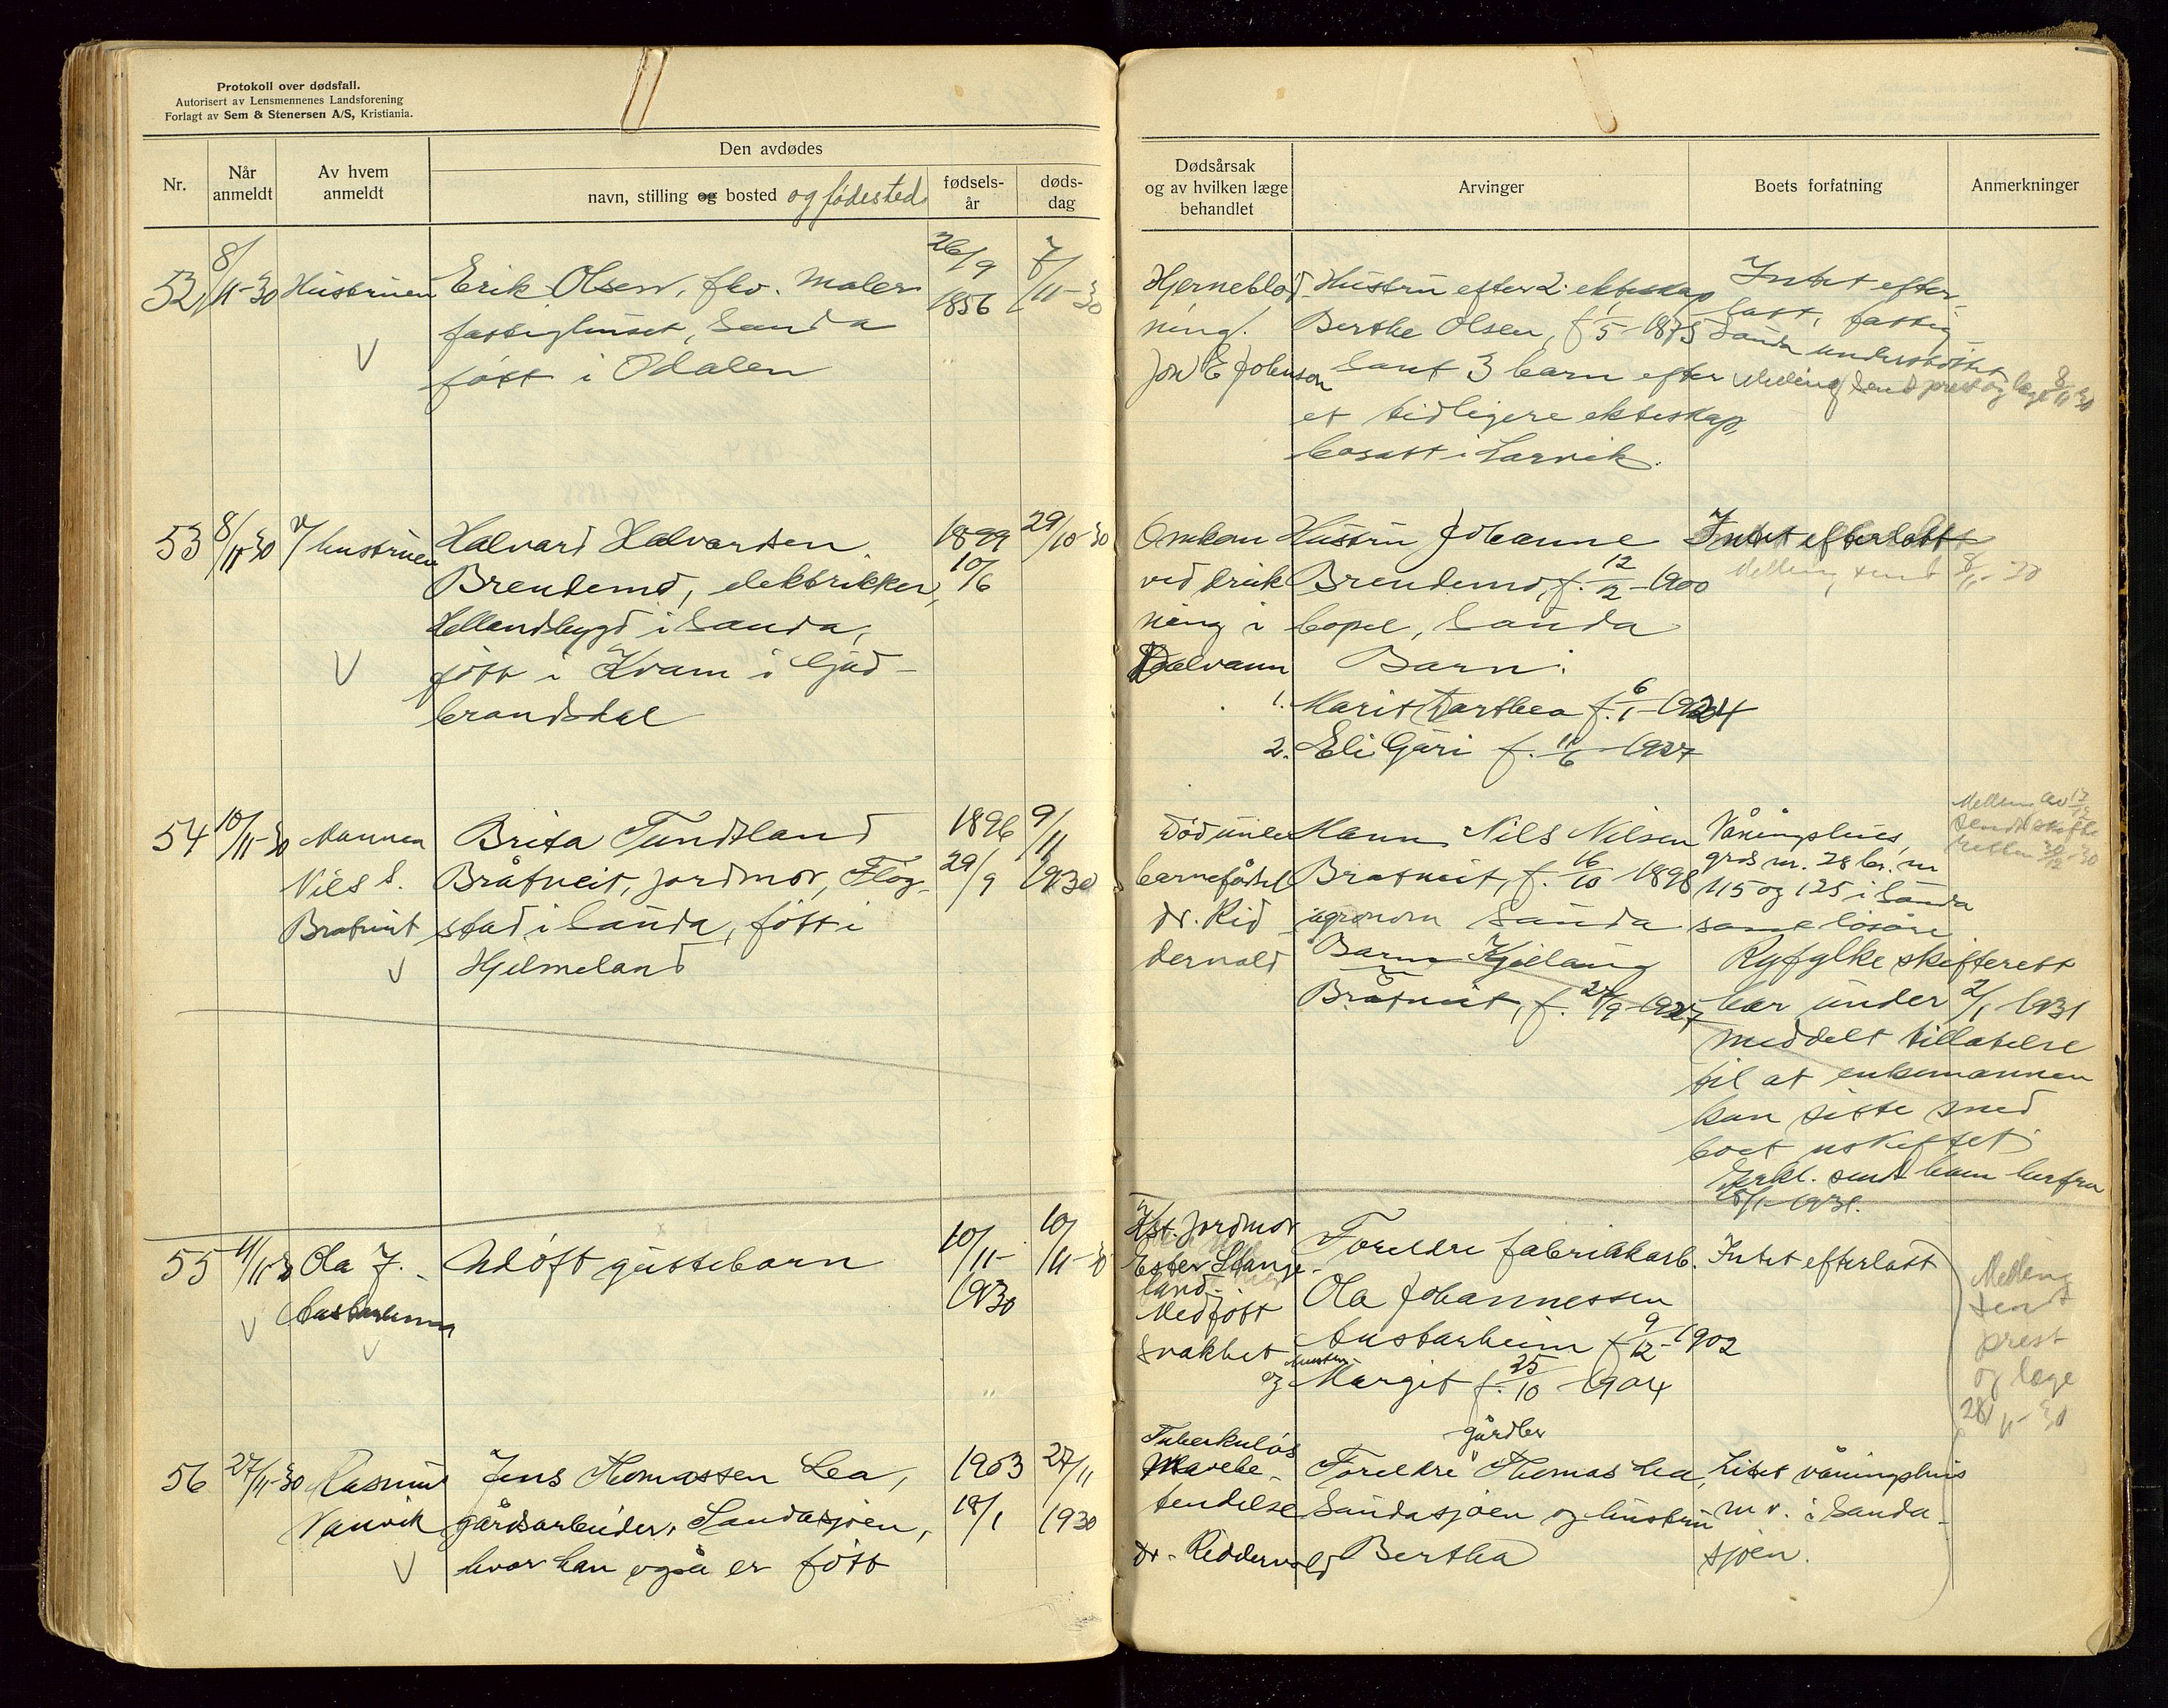 Protokoll over dødsfall.
Autorisert av Lensmennenes Landsforening
Forlagt av Sem & Stenersen A/S, Kristiania.
Nr.
Når anmeldt
Av hvem anmeldt
Den avdødes
navn, stilling og bosted og fødested
fødsels-år
døds-dag
Dødsårsak og av hvilken læge behandlet
Arvinger
Boets forfatning
Anmerkninger
52, 8/11-30 Hustruen
Erik Olsen, fhv. maler
fattighuset, Sauda
født i Odalen
26/9 1856
7/11-30
Hjerneblød-
ning.
Jon E Johnson
Hustru efter 2. ekteskap
Berthe Olsen, f 1/5-1875
samt 3 barn efter
et tidligere ekteskap,
bosatt i Larvik.
Intet efter-
latt, fattig
Sauda understøttet
Melding sendt prest og læge 8/11-30
53 8/11-30 v/ hustruen
Halvard Halvardsen
Brendemo, elektrikker,
Hellandsbygd i Sauda,
født i Kvam i Gud-
brandsdal
1899
10/6
29/10-30
Omkom
ved druk
ning i
Dalvann
Hustru Johanne
Brendemo, f. 12/12-1900
bopel, Sauda
Barn:
1. Marit Dorthea f. 6/1-1924
2. Eli Guri f. 11/6-1927
Intet efterlatt
Melding sendt 8/11-30
54 10/11-30 Mannen
Nils S.
Bratveit
Brita Tundtland
Bråtveit, jordmor, Fløg-
stad i Sauda, født i
Hjelmeland
1896
29/9
9/11
1930
Død under
barnefødsel
dr. Rid
dervold
Mann Nils Nilsen
Bratveit, f. 16/10-1898
agronom Sauda
Barn Kjellaug
Bråtveit, f. 27/9-1927
Våningshus,
grds nr. 28 br. nr
115 og 125 i Sauda
samt løsøre
Ryfylke skifterett
har under 2/1-1931
meddelt tillatelse
til at enkemannen
kan sitte med
boet uskiftet
Erkl. sendt ham herfra
1931.
Melding av
sendt skifte
retten 30/12-30
55 11/11-30 Ola J.
Austarheim
Udøpt guttebarn
10/11-
1930
10/11-30
v/ st. jordmor
Ester Stange-
land.
Medfødt
svakhet
Foreldre fabrikkarb.
Ola Johannessen
Austarheim f 9/12-1902
og hustru Margit f. 25/10-1904
Intet efterlatt
Melding
sendt
prest
og læge
28/11-30
56 27/11-30 Rasmus
Vanvik
Jens Thomassen Lea,
gårdsarbeider, Saudasjøen,
hvor han også er født
1903
18/1
27/11
1930
Tuberkuløs
Mavebe-
tendelse
dr. Riddervold
gårdbr
Foreldre Thomas Lea,
Saudasjøen og hustru
Bertha
Litet våningshus
m v. i Sauda-
sjøen.